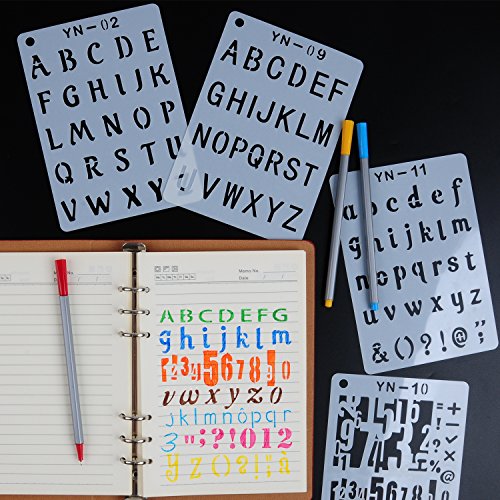 YN-02
ABCDE
FGHIJK
LMNOP
QRSTU
VWXY
YN-09
ABCDEF
GHIJKLM
NOPQRST
UVWXYZ
YN-11
abcdef
ghijklm
nopqrst
uvwxyz
&()?!@;
YN-10
Memo No.
Date
ABCDEFG
ghijklm
1234567890
uvwxyz0
jklmnôpqr
3"";?!012
yzö?!=à